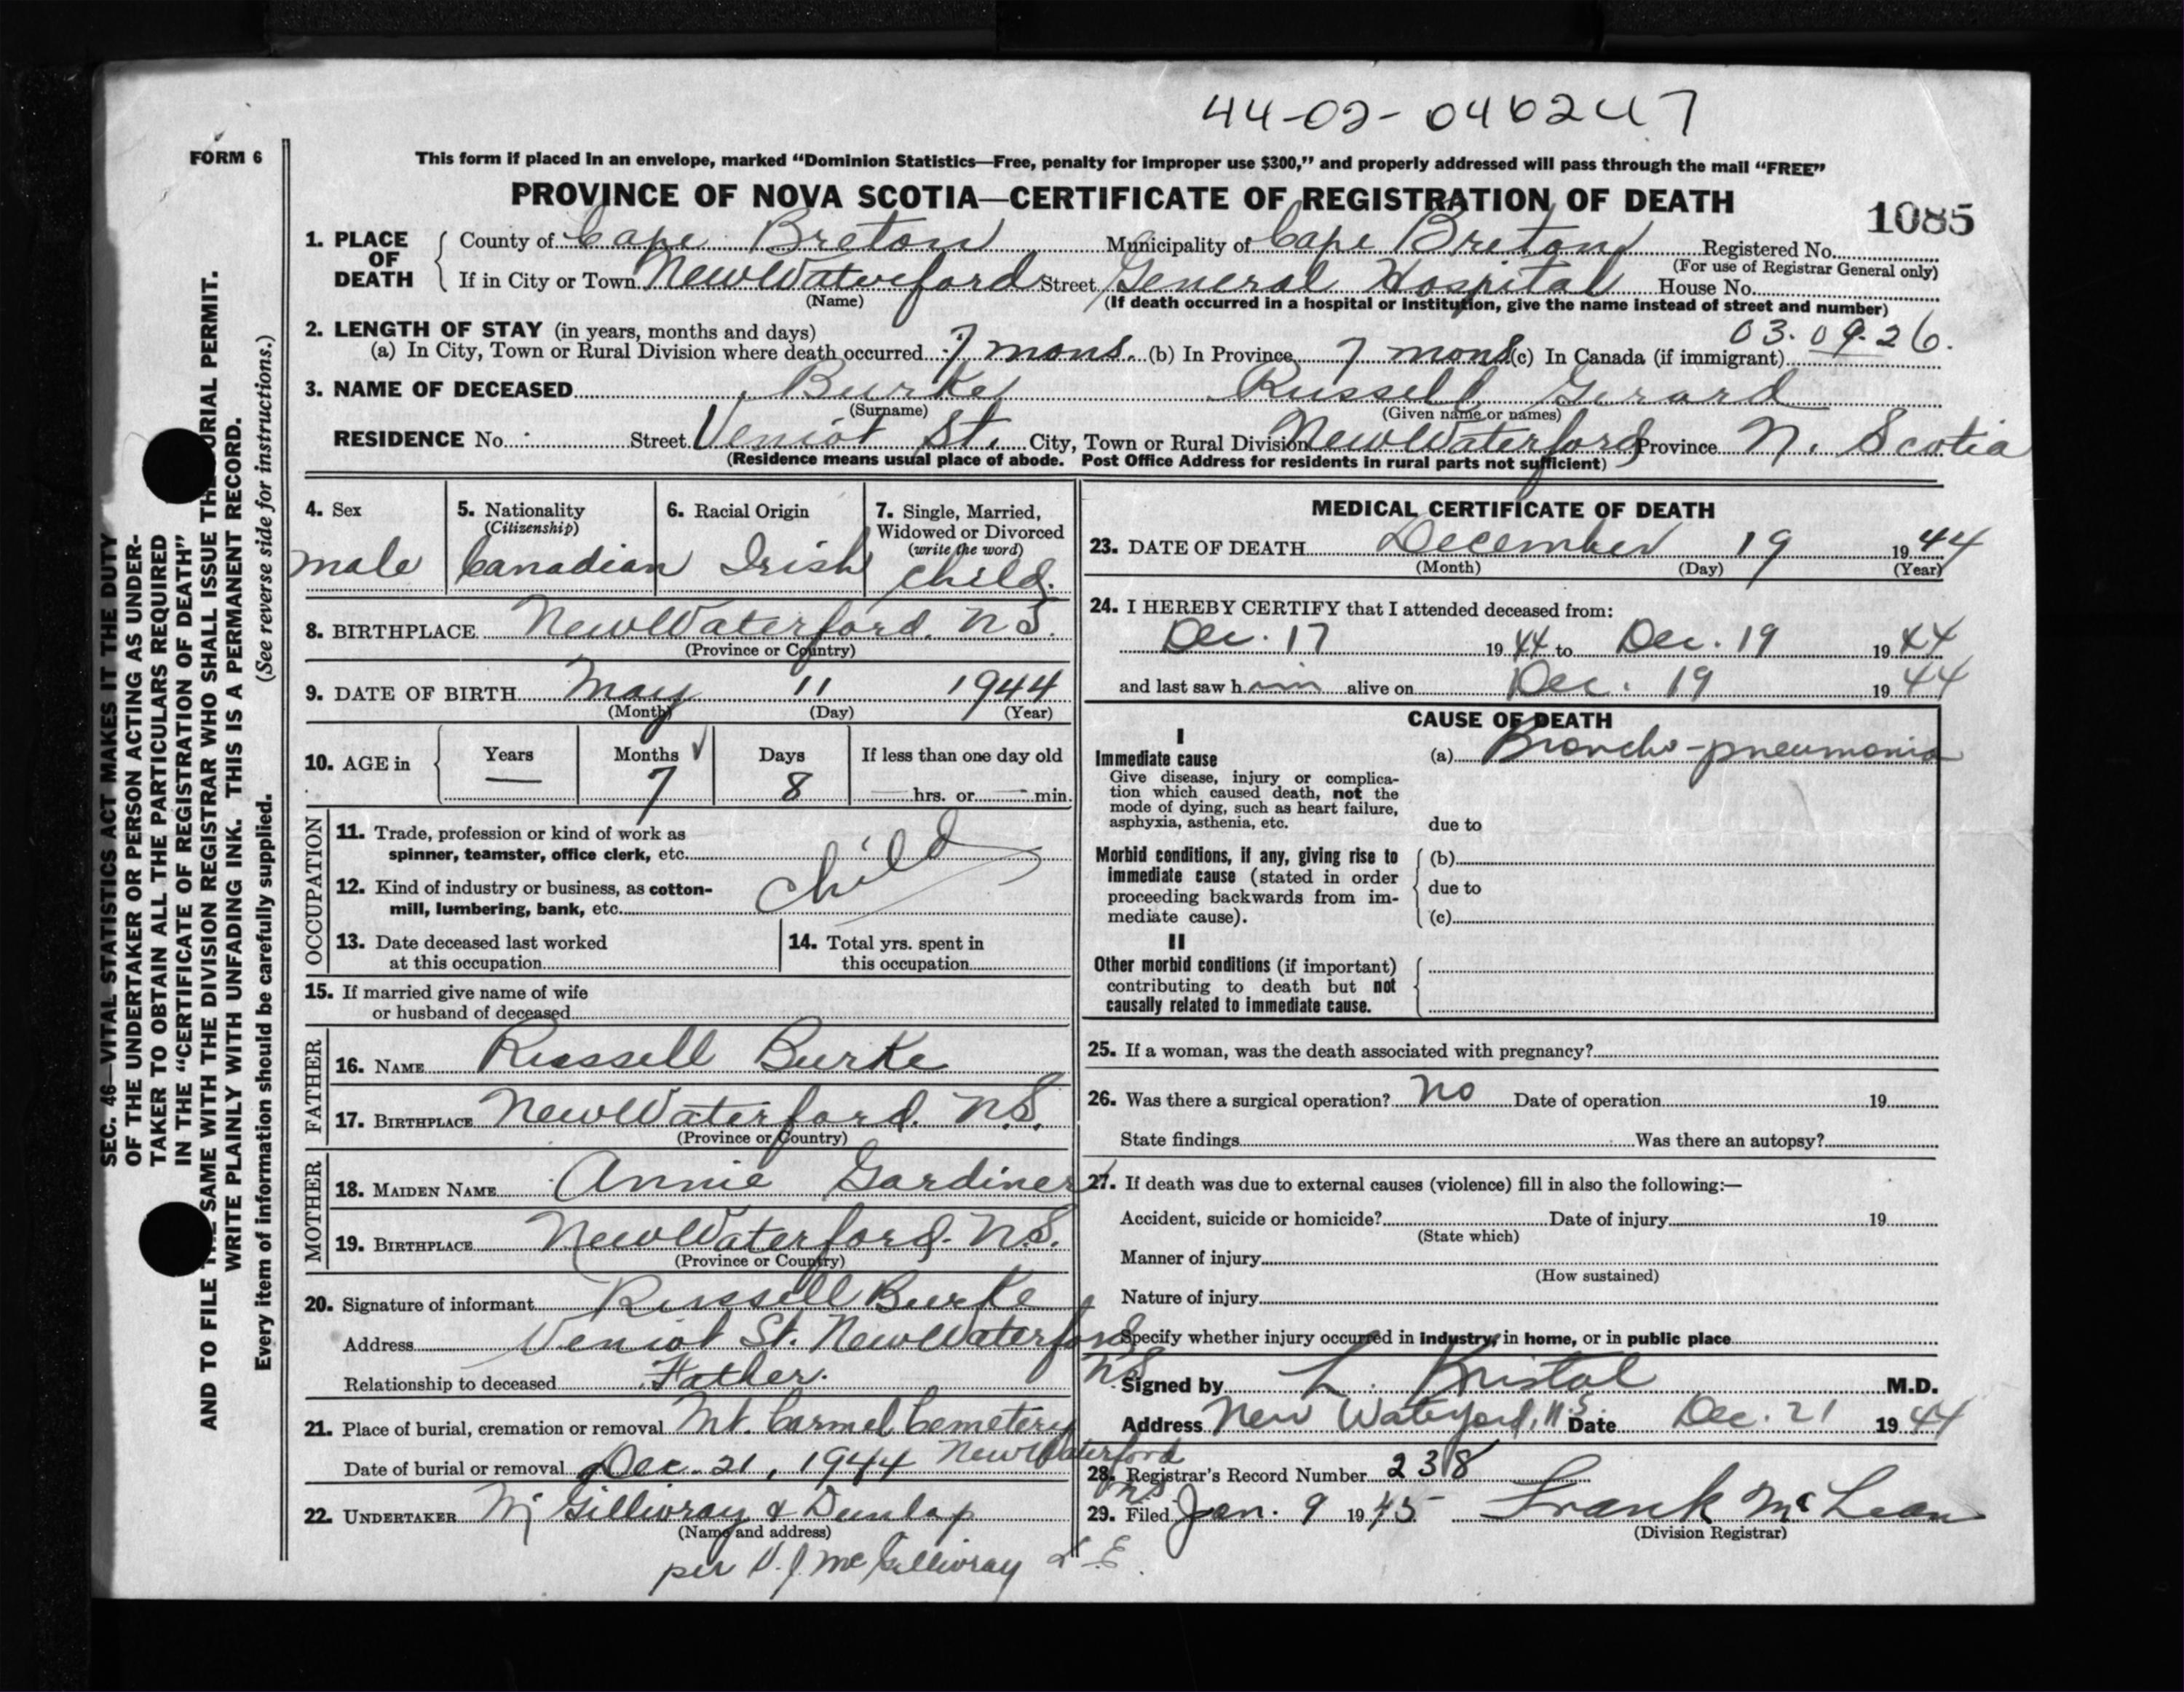 44-02-046247
FORM 6
This form if placed in an envelope, marked "Dominion Statistics—Free, penalty for improper use $300," and properly addressed will pass through the mail "FREE"
PROVINCE OF NOVA SCOTIA—CERTIFICATE OF REGISTRATION OF DEATH
1085
1. PLACE OF DEATH County of Cape Breton Municipality of Cape Breton Registered No.
(For use of Registrar General only)
If in City or Town New Waterford Street General Hospital House No.
(Name) (If death occurred in a hospital or institution, give the name instead of street and number)
2. LENGTH OF STAY (in years, months and days) 03.09.26.
(a) In City, Town or Rural Division where death occurred 7 mons. (b) In Province 7 mons (c) In Canada (if immigrant)
3. NAME OF DECEASED Burke Russell Gerard
(Surname) (Given name or names)
RESIDENCE No. Street Veniot St. City, Town or Rural Division New Waterford Province N. Scotia
(Residence means usual place of abode. Post Office Address for residents in rural parts not sufficient)
4. Sex male
5. Nationality (Citizenship) Canadian
6. Racial Origin Irish
7. Single, Married, Widowed or Divorced (write the word) child.
8. BIRTHPLACE New Waterford. N S.
(Province or Country)
9. DATE OF BIRTH May 11 1944
(Month) (Day) (Year)
10. AGE in Years — Months 7 Days 8 If less than one day old — hrs. or — min.
OCCUPATION
11. Trade, profession or kind of work as
spinner, teamster, office clerk, etc. child
12. Kind of industry or business, as cotton-
mill, lumbering, bank, etc.
13. Date deceased last worked
at this occupation
14. Total yrs. spent in
this occupation
15. If married give name of wife
or husband of deceased
FATHER
16. NAME Russell Burke
17. BIRTHPLACE New Waterford. N.S.
(Province or Country)
MOTHER
18. MAIDEN NAME Annie Gardiner
19. BIRTHPLACE New Waterford. N.S.
(Province or Country)
20. Signature of informant Russell Burke
Address Veniot St. New Waterford NS
Relationship to deceased Father.
21. Place of burial, cremation or removal Mt. Carmel Cemetery
New Waterford NS
Date of burial or removal Dec. 21, 1944
22. UNDERTAKER McGillivray & Dunlap
(Name and address)
per D. J. McGillivray L E.
MEDICAL CERTIFICATE OF DEATH
23. DATE OF DEATH December 19 1944
(Month) (Day) (Year)
24. I HEREBY CERTIFY that I attended deceased from:
Dec. 17 1944 to Dec. 19 1944
and last saw him alive on Dec. 19 1944
CAUSE OF DEATH
I
Immediate cause (a) Broncho-pneumonia
Give disease, injury or complica-
tion which caused death, not the
mode of dying, such as heart failure,
asphyxia, asthenia, etc. due to
Morbid conditions, if any, giving rise to (b)
immediate cause (stated in order
proceeding backwards from im- due to
mediate cause). (c)
II
Other morbid conditions (if important)
contributing to death but not
causally related to immediate cause.
25. If a woman, was the death associated with pregnancy?
26. Was there a surgical operation? No Date of operation 19
State findings Was there an autopsy?
27. If death was due to external causes (violence) fill in also the following:—
Accident, suicide or homicide? Date of injury 19
(State which)
Manner of injury
(How sustained)
Nature of injury
Specify whether injury occurred in industry, in home, or in public place
Signed by L. Bristol M.D.
Address New Waterford, N.S. Date Dec. 21 1944
28. Registrar's Record Number 238
29. Filed Jan. 9 1945 Frank McLean
(Division Registrar)
SEC. 46—VITAL STATISTICS ACT MAKES IT THE DUTY
OF THE UNDERTAKER OR PERSON ACTING AS UNDER-
TAKER TO OBTAIN ALL THE PARTICULARS REQUIRED
IN THE "CERTIFICATE OF REGISTRATION OF DEATH"
AND TO FILE THE SAME WITH THE DIVISION REGISTRAR WHO SHALL ISSUE THE BURIAL PERMIT.
WRITE PLAINLY WITH UNFADING INK. THIS IS A PERMANENT RECORD.
Every item of information should be carefully supplied. (See reverse side for instructions.)